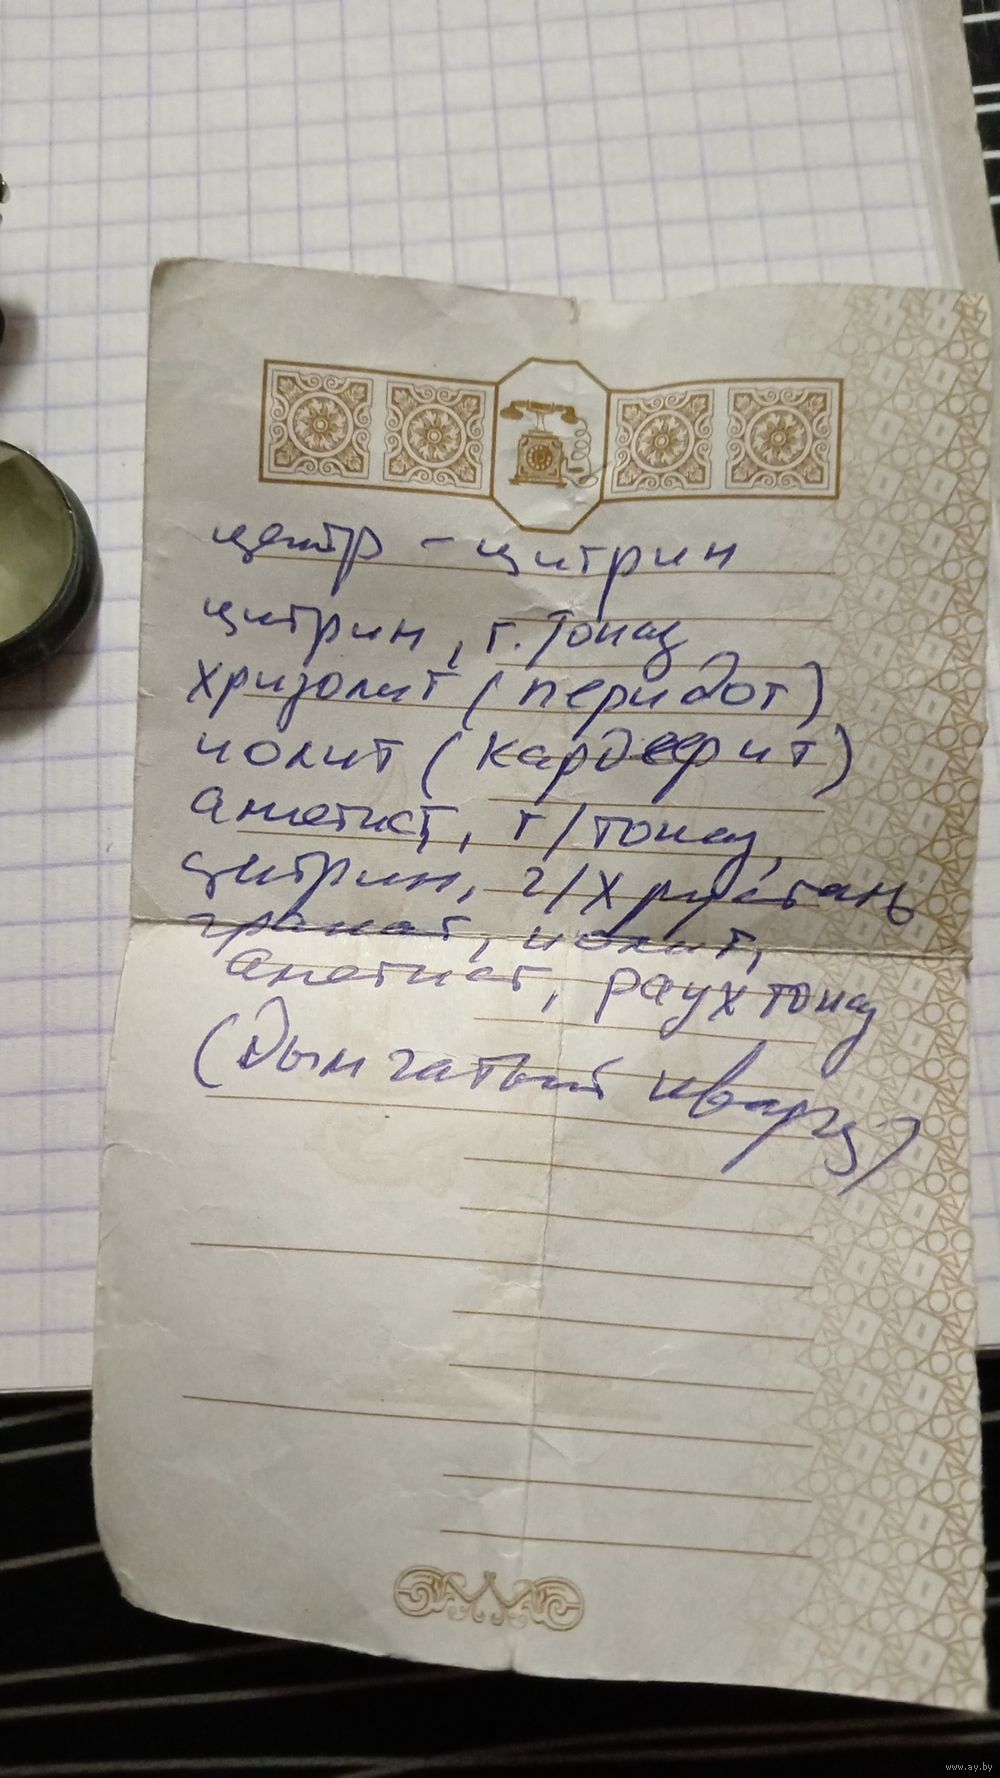 центр - цитрин
цитрин, г. Топаз
хризолит (перидот)
иолит (кардеерит)
аметист, г/топаз,
цитрин, г/хрусталь
гранат, иолит,
аметист, раухтопаз
(дымчатый кварц)
www.ay.by